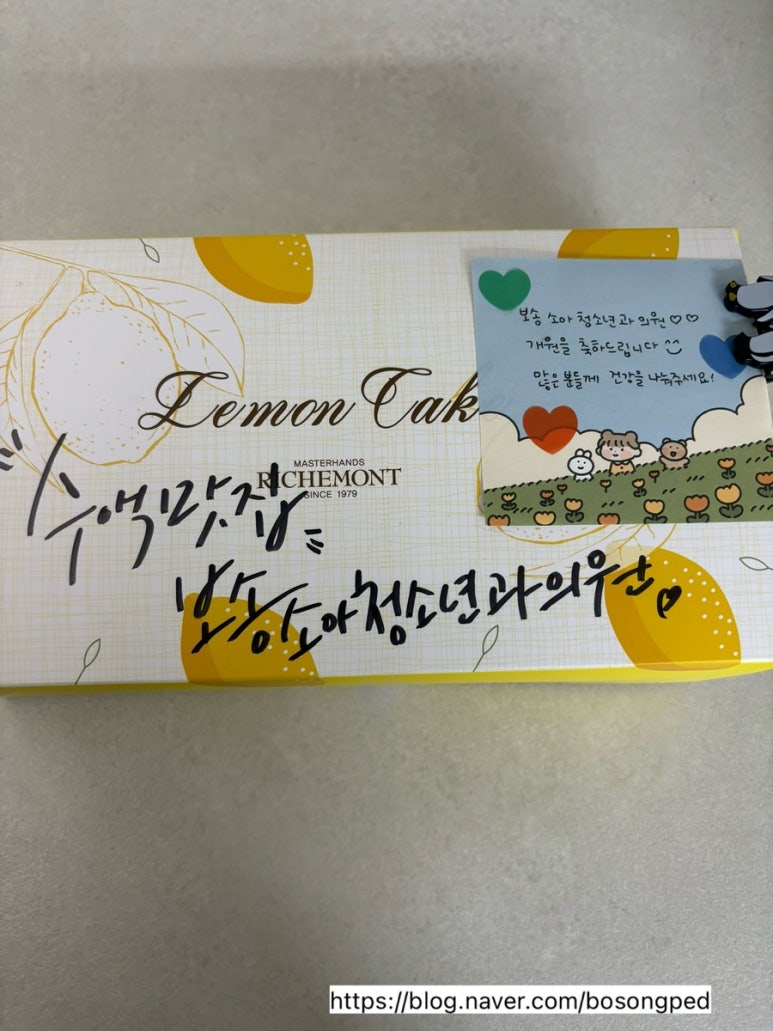 Lemon Cak
MASTERHANDS
RICHEMONT
SINCE 1979
"수액맛집"
보송소아청소년과의원♡
보송 소아청소년과 의원♡♡
개원을 축하드립니다 ^^
많은 분들께 건강을 나눠주세요!
https://blog.naver.com/bosongped